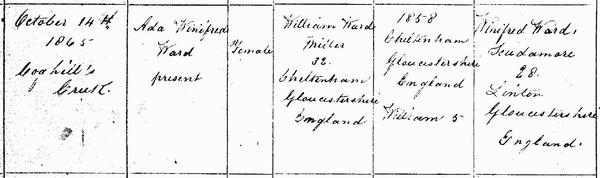 October 14th
1865
Coghill's
Creek.
Ada Winifred
Ward
present
Female
William Ward
Miller
32.
Cheltenham
Gloucestershire
England
1858
Cheltenham
Gloucestershire
England
William 5
Winifred Ward,
Scudamore
28.
Linton
Gloucestershire
England.